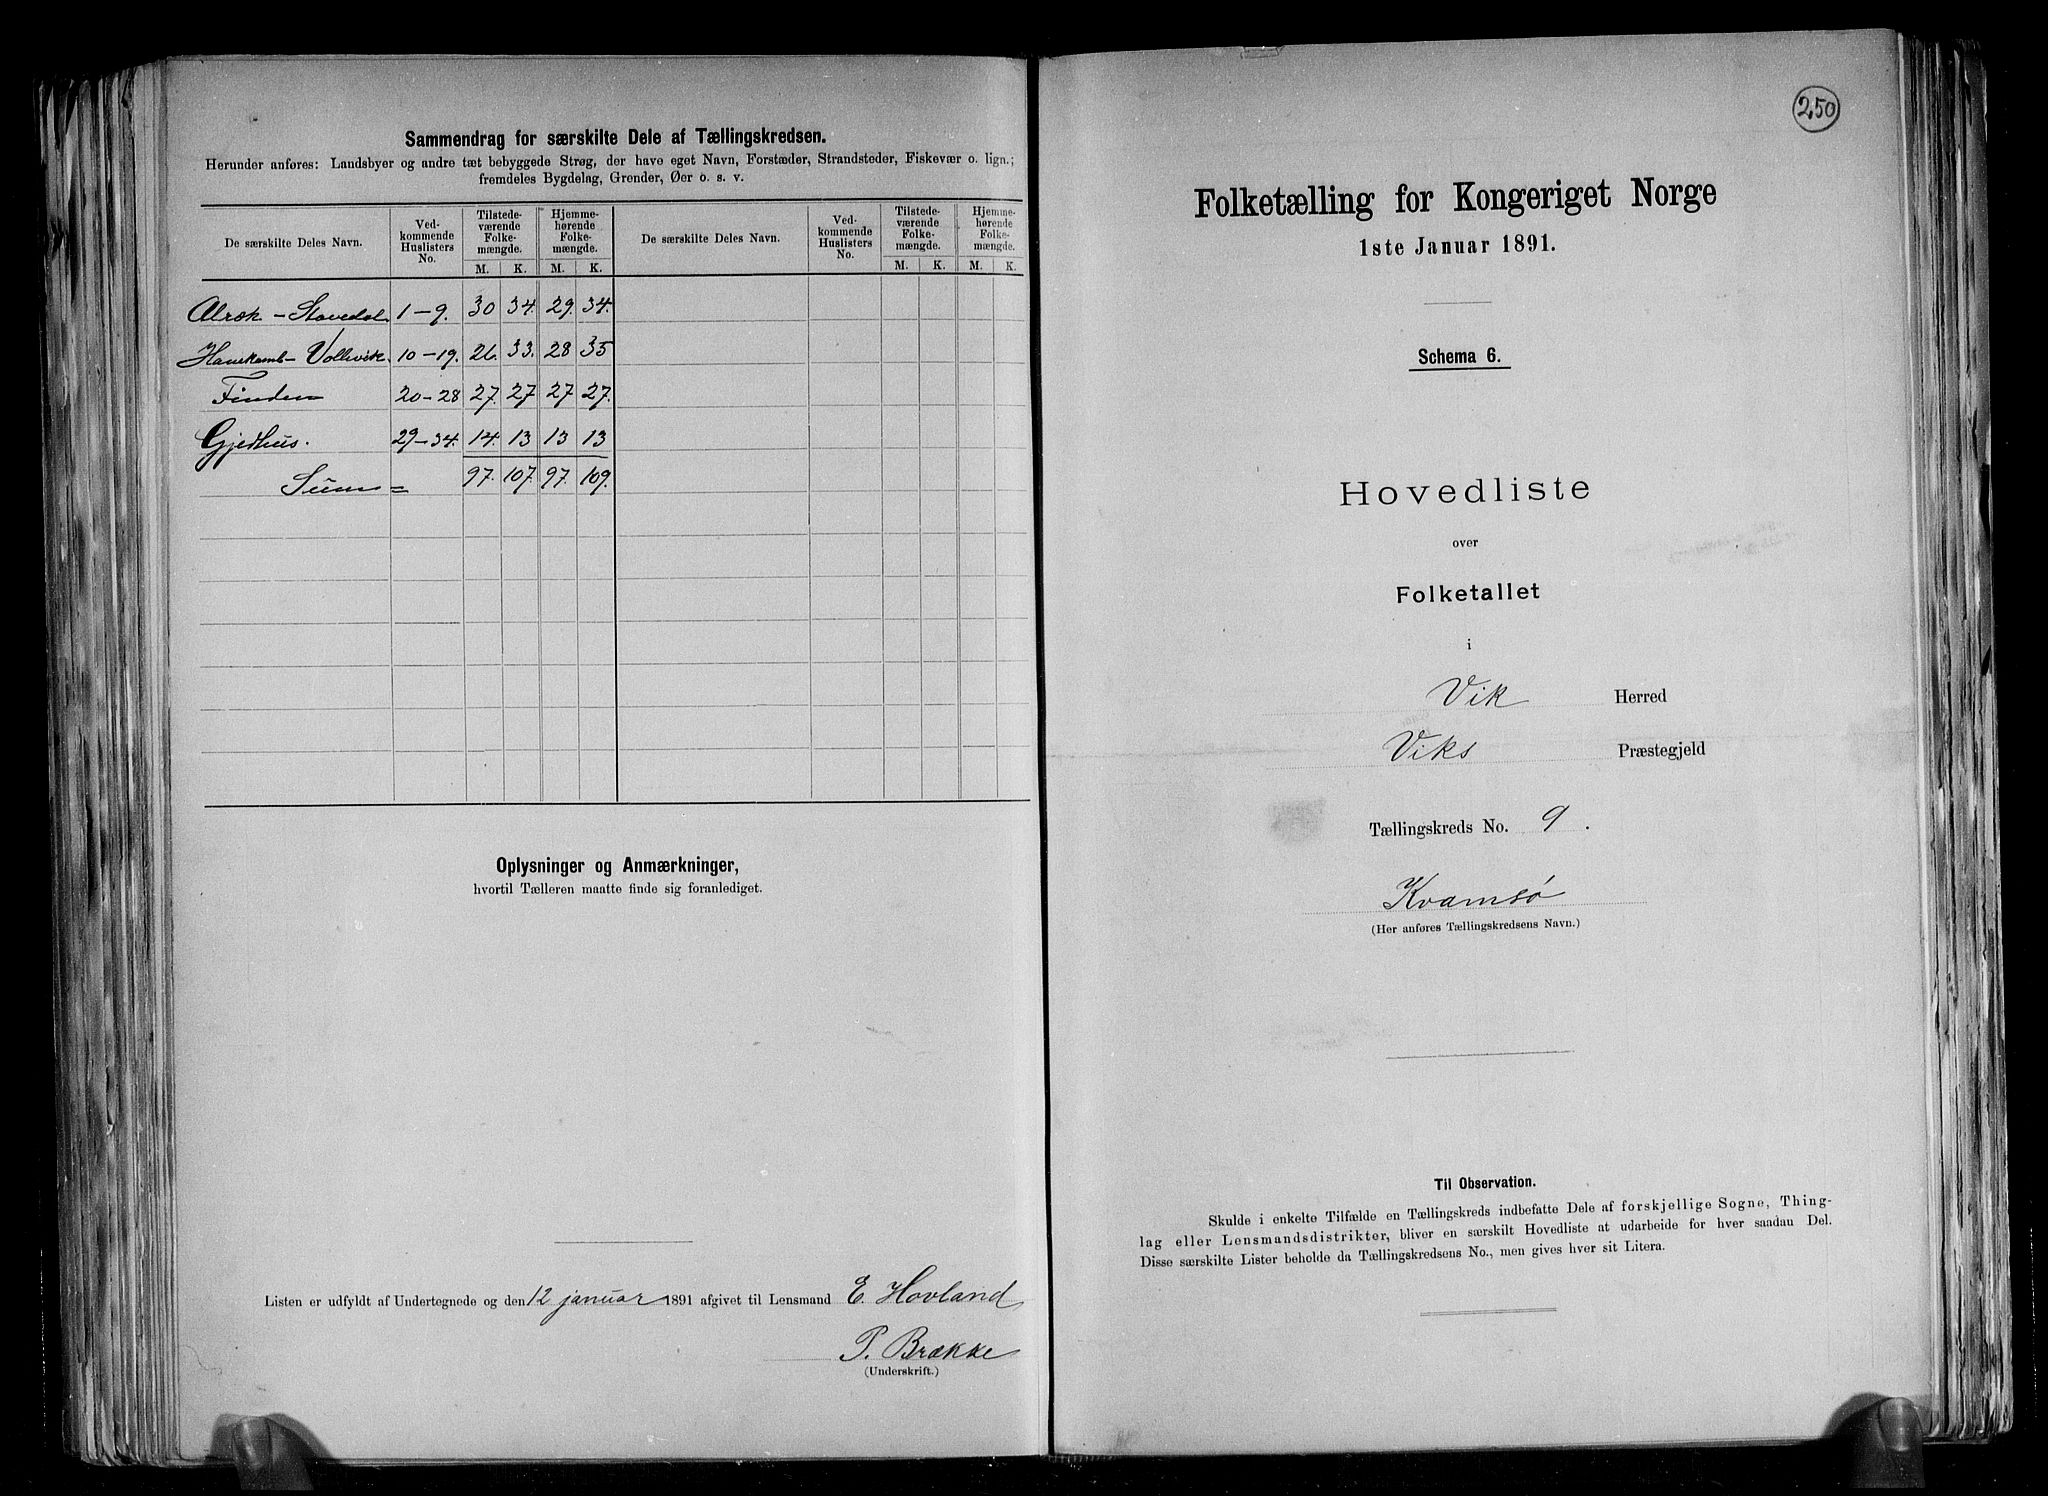 Sammendrag for særskilte Dele af Tællingskredsen.
Herunder anføres: Landsbyer og andre tæt bebyggede Strøg, der have eget Navn, Forstæder, Strandsteder, Fiskevær o. lign.;
fremdeles Bygdelag, Grender, Øer o. s. v.
De særskilte Deles Navn. Ved-kommende Huslisters No. Tilstede-værende Folke-mængde. Hjemme-hørende Folke-mængde. De særskilte Deles Navn. Ved-kommende Huslisters No. Tilstede-værende Folke-mængde. Hjemme-hørende Folke-mængde.
M. K. M. K. M. K. M. K.
Alrek - Stavedal 1-9. 30 34. 29. 34.
Hanekamb - Vollevik. 10-19. 26. 33. 28 35
Finden 20-28 27. 27 27 27.
Gjedhus. 29-34. 14. 13 13 13
Sum = 97. 107. 97. 109.
Oplysninger og Anmærkninger,
hvortil Tælleren maatte finde sig foranlediget.
Listen er udfyldt af Undertegnede og den 12 januar 1891 afgivet til Lensmand E. Hovland
P. Brække
(Underskrift.)
250
Folketælling for Kongeriget Norge
1ste Januar 1891.
Schema 6.
Hovedliste
over
Folketallet
i
Vik Herred
Viks Præstegjeld
Tællingskreds No. 9.
Kvamsö
(Her anføres Tællingskredsens Navn.)
Til Observation.
Skulde i enkelte Tilfælde en Tællingskreds indbefatte Dele af forskjellige Sogne, Thing-
lag eller Lensmandsdistrikter, bliver en særskilt Hovedliste at udarbeide for hver saadau Del.
Disse særskilte Lister beholde da Tællingskredsens No., men gives hver sit Litera.